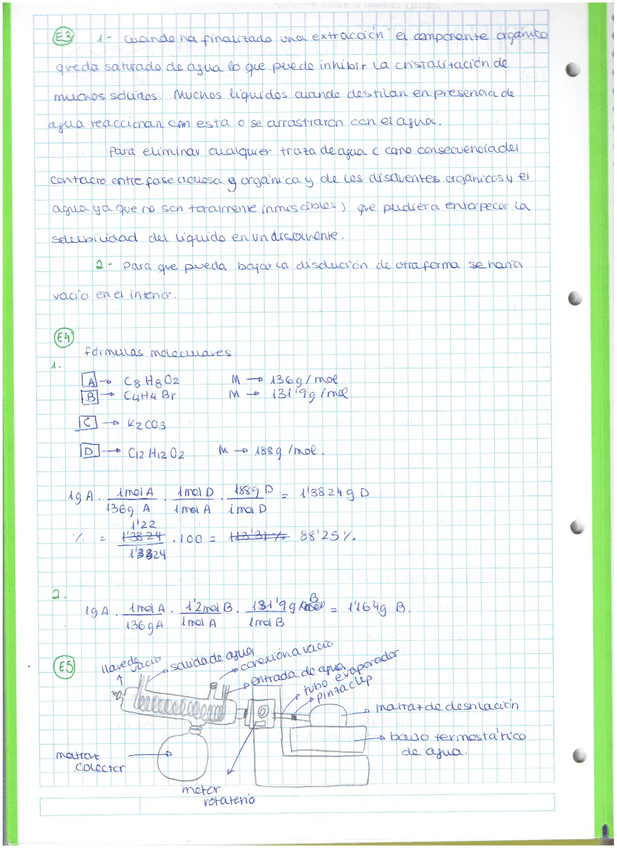 E3 1- Cuando ha finalizado una extracción el componente orgánico
queda saturado de agua lo que puede inhibir la cristalización de
muchos sólidos. Muchos líquidos cuando destilan en presencia de
agua reaccionan con esta o se arrastraron con el agua.
Para eliminar cualquier traza de agua (como consecuencia del
contacto entre fase acuosa y orgánica y de los disolventes orgánicos y el
agua ya que no son totalmente inmiscibles) que pudiera entorpecer la
solubilidad del líquido en un disolvente.
2- Para que pueda bajar la disolución de otra forma se haría
vacío en el interior.
E4
Fórmulas moleculares
1.
A → C8H8O2 M → 136g/mol
B → C4H4Br M → 131'9g/mol
C → K2CO3
D → C12H12O2 M → 188g/mol.
1gA · 1mol A / 136g A · 1mol D / 1mol A · 188g D / 1mol D = 1'3824g D
% = 1'22 / 1'3824 · 100 = 88'25%.
2.
1gA · 1mol A / 136gA · 1'2mol B / 1mol A · 131'9g B / 1mol B = 1'164g B.
E5
llave de vacío
salida de agua
conexión a vacío
entrada de agua
tubo evaporador
pinza clip
matraz de destilación
baño termostático
de agua.
matraz
colector
motor
rotatorio